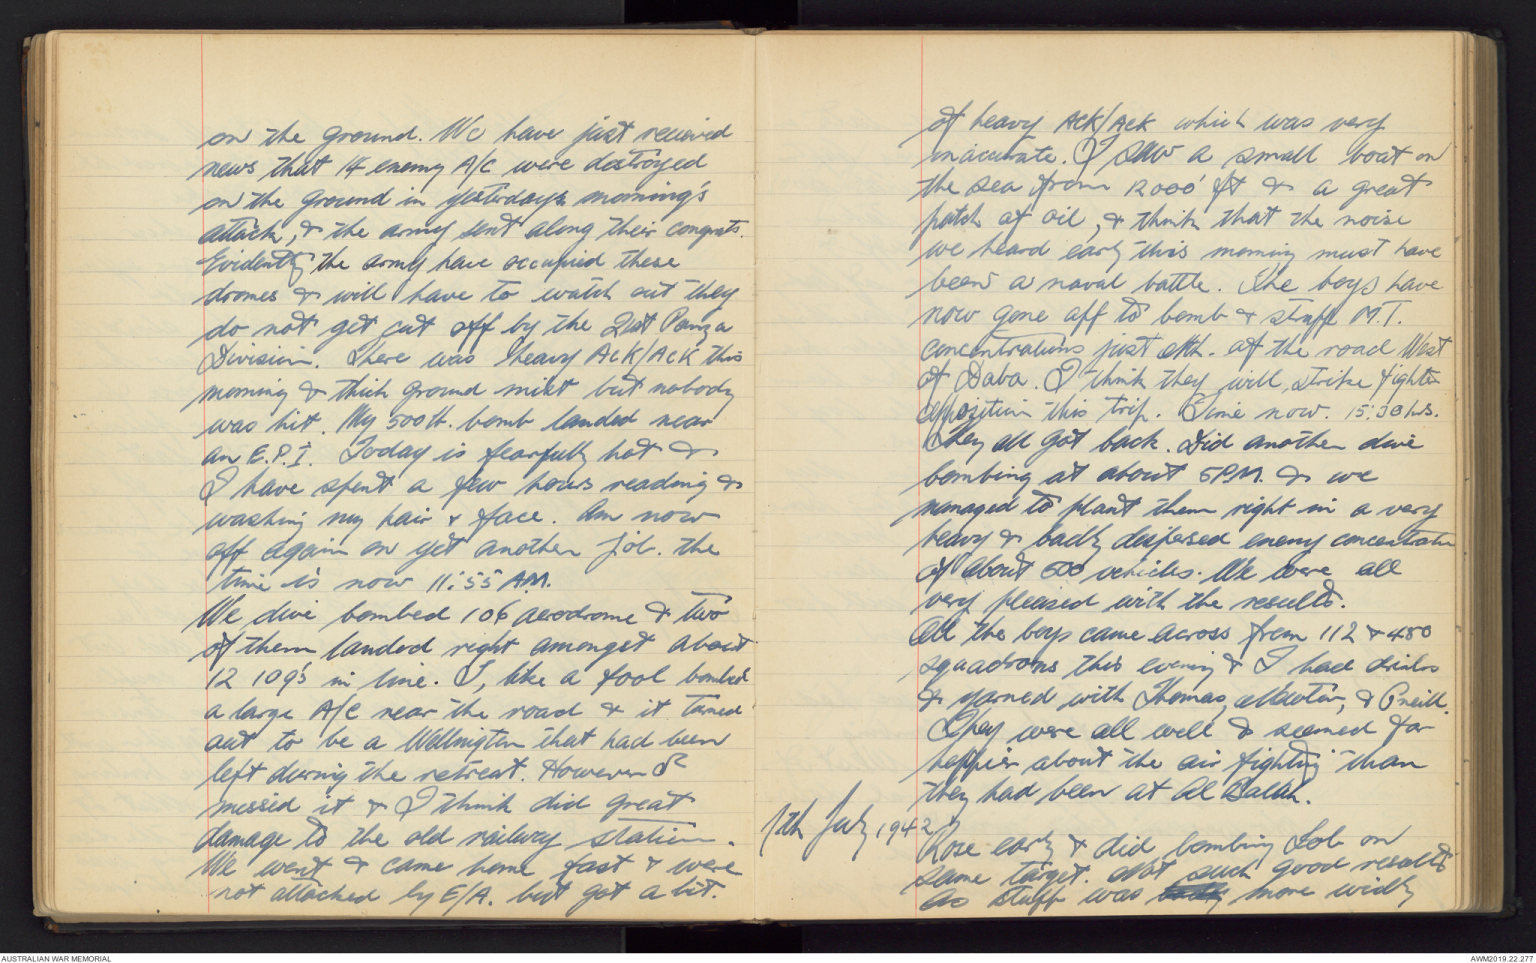 on the ground. We have just recieved
news that 14 enemy A/C were destroyed
on the ground in yesterdays morning's
attack, & the army sent along their congrats.
Evidently the army have occupied these
dromes & will have to watch out they
do not get cut off by the 21st Panza
Division. There was heavy Ack/Ack this
morning & thick ground mist but nobody
was hit. My 500 lb. bomb landed near
an E.P.I. Today is fearfully hot &
I have spent a few hours reading &
washing my hair & face. Am now
off again on yet another job. The
time is now 11:55 AM.
We dive bombed 106 aerodrome & two
of them landed right amongst about
12 109's in line. I, like a fool bombed
a large A/C near the road & it turned
out to be a Wellington that had been
left during the retreat. However I
missed it & I think did great
damage to the old railway station.
We went & came home fast & were
not attacked by E/A. but got a bit.
of heavy Ack/Ack which was very
inaccurate. I saw a small boat on
the sea from 12000' ft & a great
patch of oil, & think that the noise
we heard early this morning must have
been a naval battle. The boys have
now gone off to bomb & straff M.T.
concentrations just Sth. of the road West
of Daba. I think they will strike fighter
opposition this trip. Time now. 15:30 hrs.
They all got back. Did another dive
bombing at about 5 P.M. & we
managed to plant them right in a very
heavy & badly dispersed enemy concentration
of about 500 vehicles. We were all
very pleased with the results.
All the boys came across from 112 & 450
squadrons this evening & I had drinks
& yarned with Thomas, & 
They were all well & seemed far
happier about the air fighting than
they had been at Al Balah.
7th July 1942
Rose early & did bombing Job on
same target. Not such good results
as stuff was more widly
AUSTRALIAN WAR MEMORIAL
AWM2019.22.277